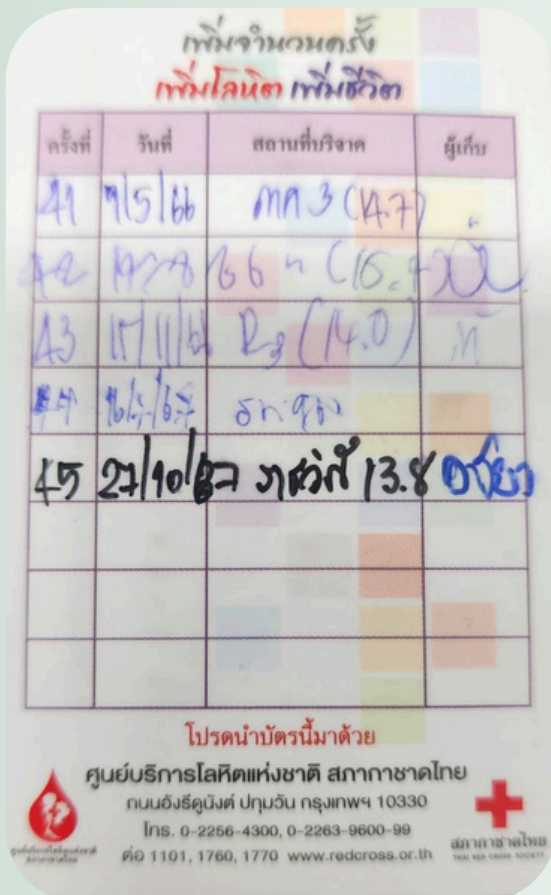 เพิ่มจำนวนครั้ง
เพิ่มโลหิต เพิ่มชีวิต
ครั้งที่ วันที่ สถานที่บริจาค ผู้เก็บ
41 9/5/66 ภค 3 (14.7)
43 11/66 (14.0)
45 27/10/67 ราชวิถี 13.8
โปรดนำบัตรนี้มาด้วย
ศูนย์บริการโลหิตแห่งชาติ สภากาชาดไทย
ถนนอังรีดูนังต์ ปทุมวัน กรุงเทพฯ 10330
โทร. 0-2256-4300, 0-2263-9600-99
ต่อ 1101, 1760, 1770 www.redcross.or.th
ศูนย์บริการโลหิตแห่งชาติ
สภากาชาดไทย
สภากาชาดไทย
THAI RED CROSS SOCIETY